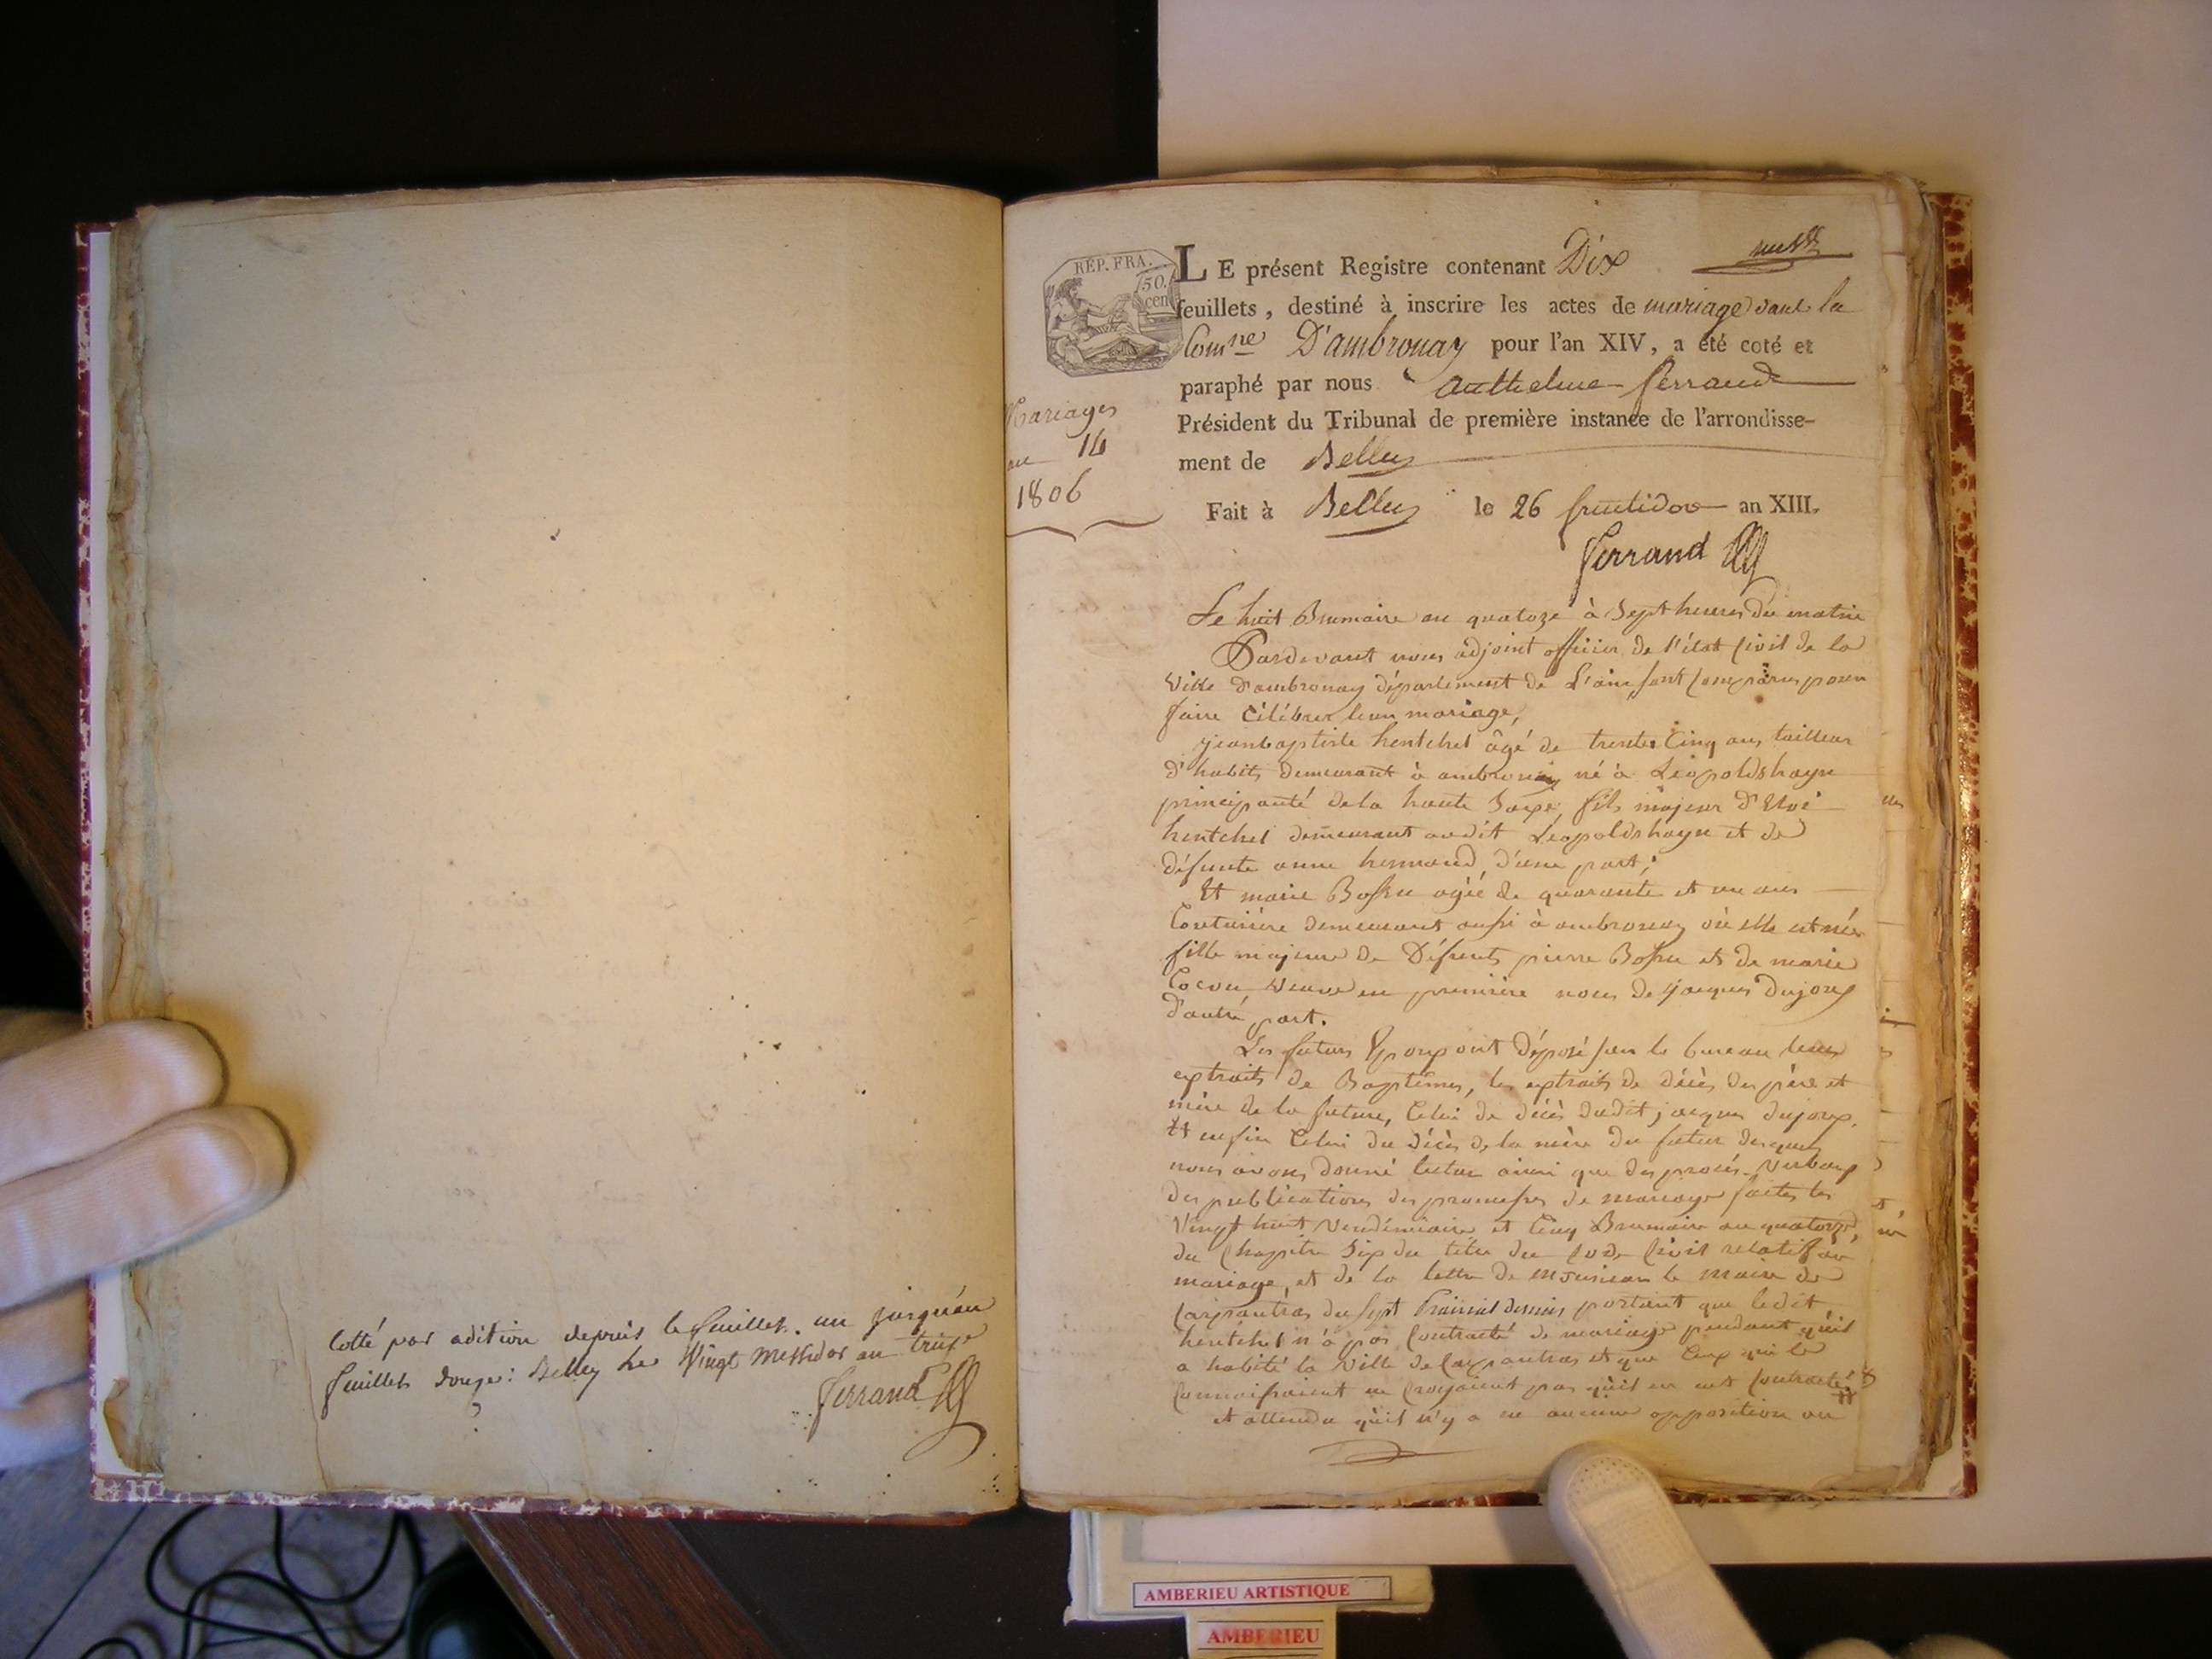 Cotté par adition depuis le feuillet un jusqu'au
feuillet douze: Belley le Vingt Messidor an treize
Ferrand
RÉP. FRA.
50.
cen
Mariages
an 14
1806
LE présent Registre contenant Dix
feuillets, destiné à inscrire les actes de mariage dans la
Comne D'ambronay pour l'an XIV, a été coté et
paraphé par nous anthelme ferrand
Président du Tribunal de première instance de l'arrondisse-
ment de Belley
Fait à Belley le 26 fructidor an XIII.
Ferrand
Le huit Brumaire an quatoze à Sept heures du matin
Pardevant nous adjoint officier de l'état Civil de la
Ville d'ambronay département de L'ain sont comparus pour
faire Célébrer leur mariage,
jeanbaptiste hentchel âgé de trente Cinq ans tailleur
d'habits demeurant à ambronay né à Léopoldshayn
principauté de la haute Saxe, fils majeur d'Eloi
hentchel demeurant audit Léopoldshayn et de
défunte anne hermand, d'une part;
Et marie Bossu agée de quarante et un ans
Couturière demeurant aussi à ambronay où elle est née
fille majeure de Défunts pierre Bossu et de marie
Cocou, Veuve en première noces de jacques Dujoux
d'autre part.
Les futurs Epoux ont déposé sur le bureau leurs
extraits de Baptêmes, les extraits de décès des père et
mère de la future, Celui de décès dudit jacques dujoux,
Et enfin Celui du décès de la mère du futur desquels
nous avons donné lecture ainsi que des procès-Verbaux
des publications des promesses de mariage faites les
Vingt huit Vendémiaire et Cinq Brumaire an quatorze,
du Chapitre Six du titre du Code Civil relatif au
mariage, et de la lettre de Monsieur le Maire de
Carpantras du sept Prairial dernier portant que ledit
hentchel n'a pas Contracté de mariage pendant qu'il
a habité la Ville de Carpantras et que Ceux qui le
Connaissaient ne Croyaient pas qu'il en eut Contracté
et attendu qu'il n'y a eu aucune opposition au
AMBERIEU ARTISTIQUE
AMBERIEU